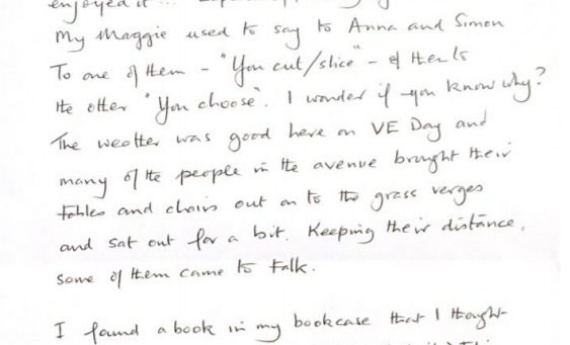 enjoyed it...
My Maggie used to say to Anna and Simon
To one of them - "You cut/slice" - & then to
the other "You choose". I wonder if you know why?
The weather was good here on VE Day and
many of the people in the avenue brought their
tables and chairs out on to the grass verges
and sat out for a bit. Keeping their distance,
some of them came to talk.
I found a book in my bookcase that I thought